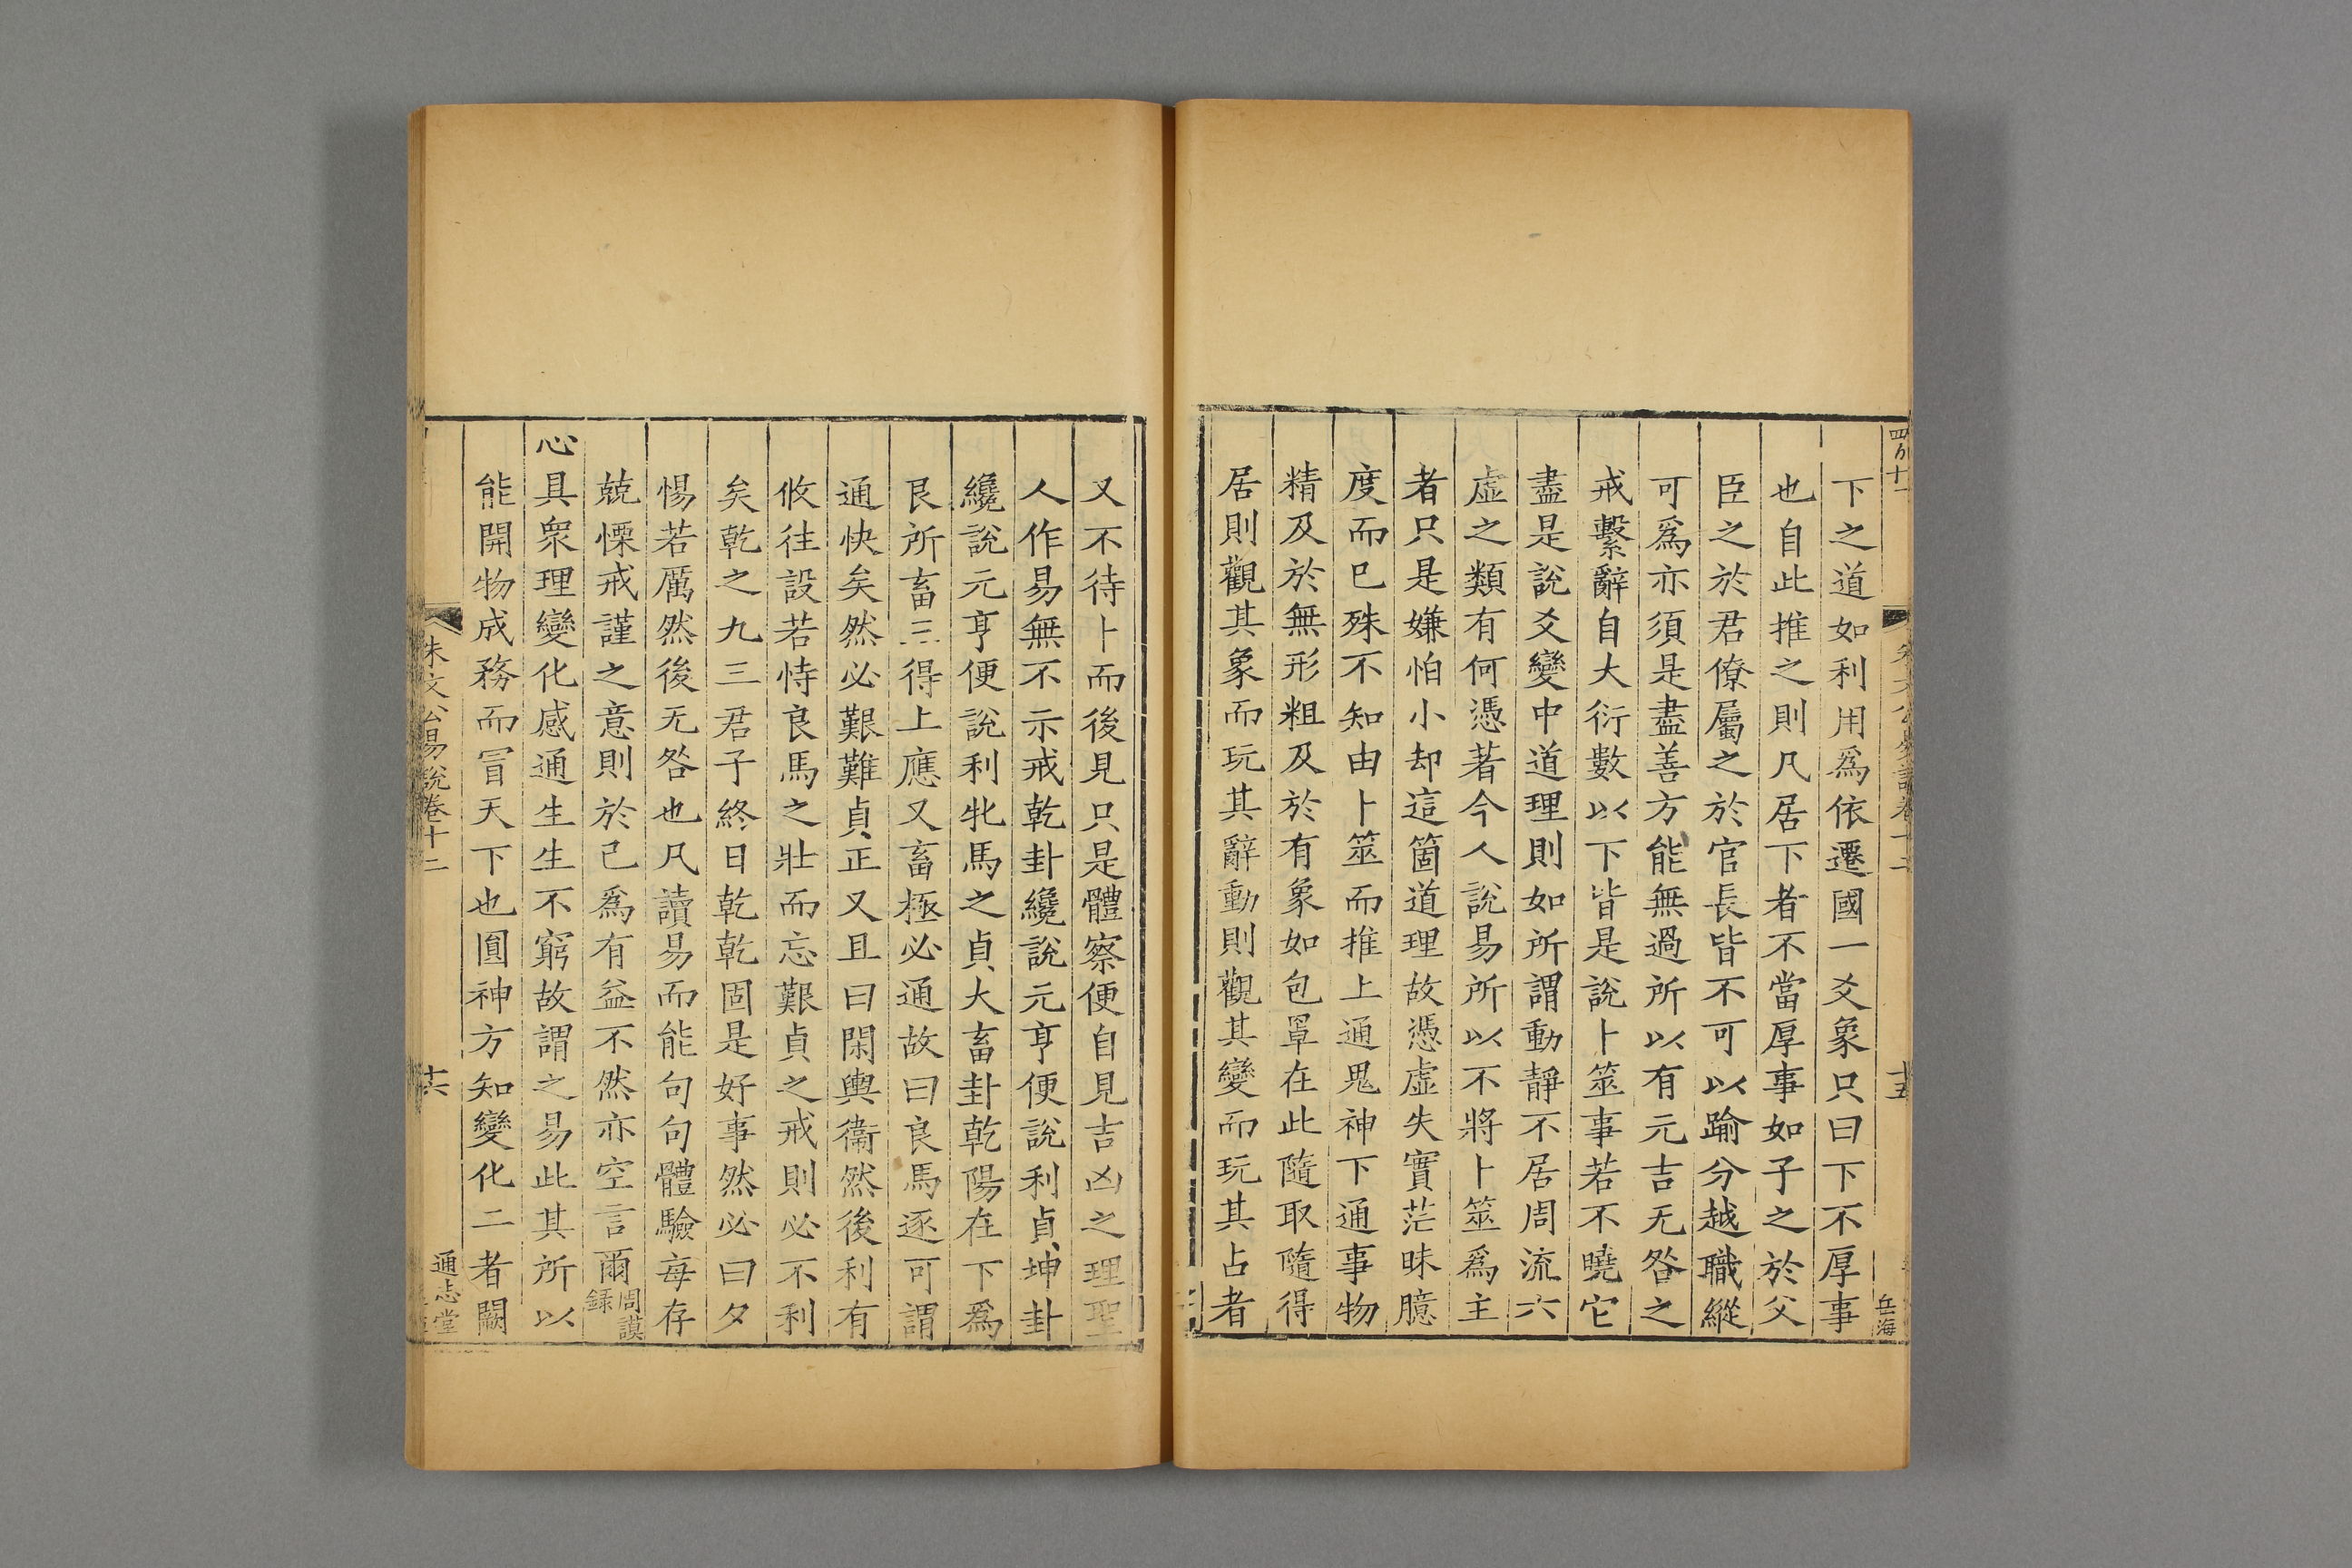 下之道如利用爲依遷國一爻象只曰下不厚事
也自此推之則凡居下者不當厚事如子之於父
臣之於君僚屬之於官長皆不可以踰分越職縱
可爲亦須是盡善方能無過所以有元吉无咎之
戒繫辭自大衍數以下皆是說卜筮事若不曉它
盡是說爻變中道理則如所謂動靜不居周流六
虛之類有何憑著今人說易所以不將卜筮爲主
者只是嫌怕小却這箇道理故憑虛失實茫昧臆
度而已殊不知由卜筮而推上通鬼神下通事物
精及於無形粗及於有象如包罩在此隨取隨得
居則觀其象而玩其辭動則觀其變而玩其占者
又不待卜而後見只是體察便自見吉凶之理聖
人作易無不示戒乾卦纔說元亨便說利貞坤卦
纔說元亨便說利牝馬之貞大畜卦乾陽在下爲
艮所畜三得上應又畜極必通故曰良馬逐可謂
通快矣然必艱難貞正又且曰閑輿衞然後利有
攸往設若恃良馬之壯而忘艱貞之戒則必不利
矣乾之九三君子終日乾乾固是好事然必曰夕
惕若厲然後无咎也凡讀易而能句句體驗每存
兢慄戒謹之意則於己爲有益不然亦空言爾周謨錄
心具衆理變化感通生生不窮故謂之易此其所以
能開物成務而冒天下也圓神方知變化二者闕
朱文公易說卷十二
十六
通志堂